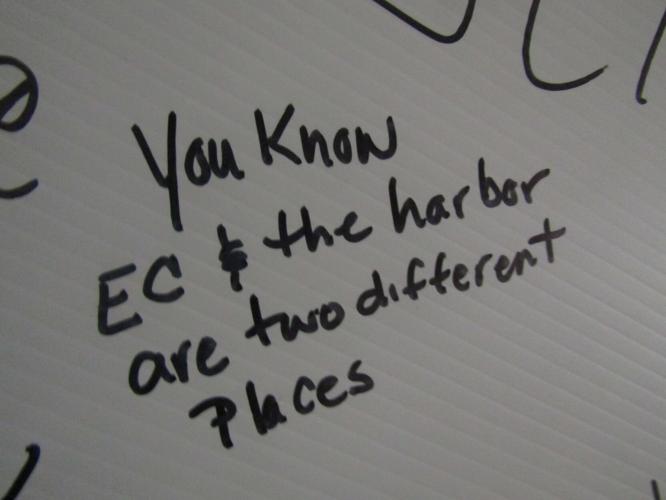 You Know
EC & the harbor
are two different
Places